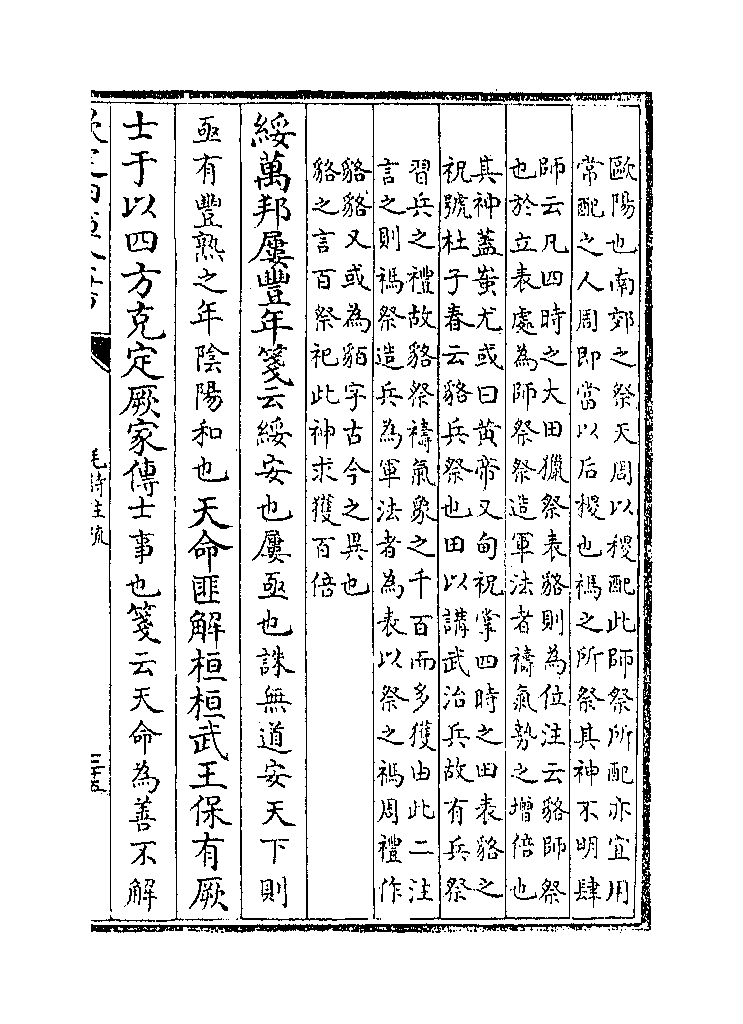 歐陽也南郊之祭天周以稷配此師祭所配亦宜用
常配之人周即當以后稷也禡之所祭其神不明肆
師云凡四時之大田獵祭表貉則為位注云貉師祭
也於立表處為師祭祭造軍法者禱氣勢之增倍也
其神蓋蚩尤或曰黄帝又甸祝掌四時之田表貉之
祝號杜子春云貉兵祭也田以講武治兵故有兵祭
習兵之禮故貉祭禱氣象之千百而多獲由此二注
言之則禡祭造兵為軍法者為表以祭之禡周禮作
貉貉又或為貊字古今之異也
貉之言百祭祀此神求獲百倍
綏萬邦屢豐年箋云綏安也屢亟也誅無道安天下則
亟有豐熟之年陰陽和也天命匪解桓桓武王保有厥
士于以四方克定厥家傳士事也箋云天命為善不解
毛詩注疏
三十五